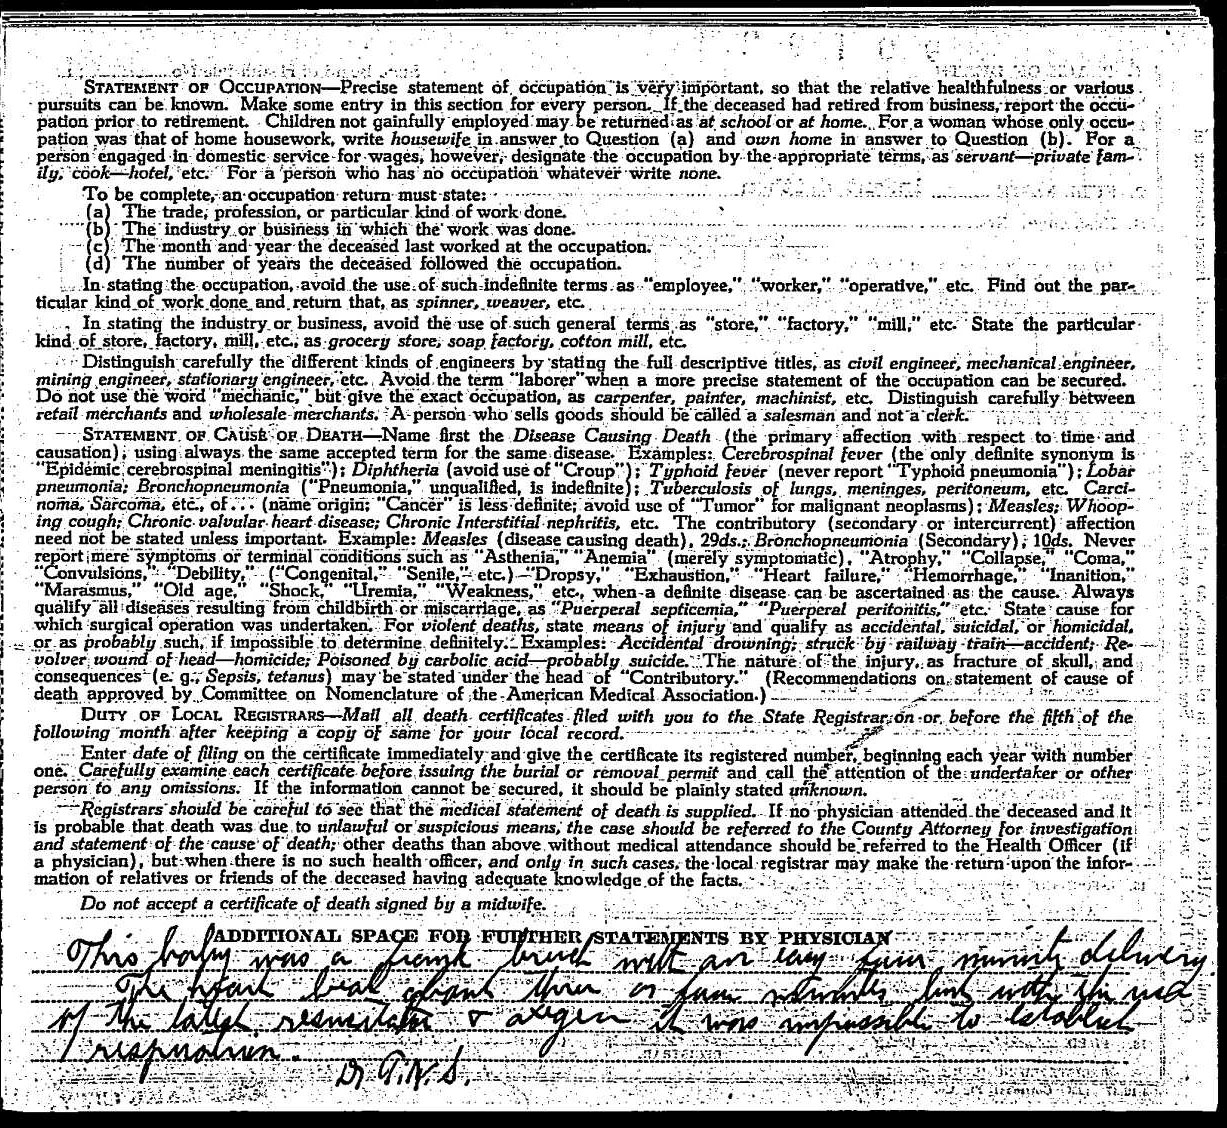 STATEMENT OF OCCUPATION—Precise statement of occupation is very important, so that the relative healthfulness or various
pursuits can be known. Make some entry in this section for every person. If the deceased had retired from business, report the occu-
pation prior to retirement. Children not gainfully employed may be returned as at school or at home. For a woman whose only occu-
pation was that of home housework, write housewife in answer to Question (a) and own home in answer to Question (b). For a
person engaged in domestic service for wages, however, designate the occupation by the appropriate terms, as servant—private fam-
ily, cook—hotel, etc. For a person who has no occupation whatever write none.
To be complete, an occupation return must state:
(a) The trade, profession, or particular kind of work done.
(b) The industry or business in which the work was done.
(c) The month and year the deceased last worked at the occupation.
(d) The number of years the deceased followed the occupation.
In stating the occupation, avoid the use of such indefinite terms as "employee," "worker," "operative," etc. Find out the par-
ticular kind of work done and return that, as spinner, weaver, etc.
In stating the industry or business, avoid the use of such general terms as "store," "factory," "mill," etc. State the particular
kind of store, factory, mill, etc., as grocery store, soap factory, cotton mill, etc.
Distinguish carefully the different kinds of engineers by stating the full descriptive titles, as civil engineer, mechanical engineer,
mining engineer, stationary engineer, etc. Avoid the term "laborer" when a more precise statement of the occupation can be secured.
Do not use the word "mechanic," but give the exact occupation, as carpenter, painter, machinist, etc. Distinguish carefully between
retail merchants and wholesale merchants. A person who sells goods should be called a salesman and not a clerk.
STATEMENT OF CAUSE OF DEATH—Name first the Disease Causing Death (the primary affection with respect to time and
causation), using always the same accepted term for the same disease. Examples: Cerebrospinal fever (the only definite synonym is
"Epidemic cerebrospinal meningitis"); Diphtheria (avoid use of "Croup"); Typhoid fever (never report "Typhoid pneumonia"); Lobar
pneumonia; Bronchopneumonia ("Pneumonia," unqualified, is indefinite); Tuberculosis of lungs, meninges, peritoneum, etc. Carci-
noma, Sarcoma, etc., of... (name origin; "Cancer" is less definite; avoid use of "Tumor" for malignant neoplasms); Measles; Whoop-
ing cough; Chronic valvular heart disease; Chronic Interstitial nephritis, etc. The contributory (secondary or intercurrent) affection
need not be stated unless important. Example: Measles (disease causing death), 29ds.; Bronchopneumonia (Secondary), 10ds. Never
report mere symptoms or terminal conditions such as "Asthenia," "Anemia" (merely symptomatic), "Atrophy," "Collapse," "Coma,"
"Convulsions," "Debility," ("Congenital," "Senile," etc.) "Dropsy," "Exhaustion," "Heart failure," "Hemorrhage," "Inanition,"
"Marasmus," "Old age," "Shock," "Uremia," "Weakness," etc., when a definite disease can be ascertained as the cause. Always
qualify all diseases resulting from childbirth or miscarriage, as "Puerperal septicemia," "Puerperal peritonitis," etc. State cause for
which surgical operation was undertaken. For violent deaths, state means of injury and qualify as accidental, suicidal, or homicidal,
or as probably such, if impossible to determine definitely. Examples: Accidental drowning; struck by railway train—accident; Re-
volver wound of head—homicide; Poisoned by carbolic acid—probably suicide. The nature of the injury, as fracture of skull, and
consequences (e. g., Sepsis, tetanus) may be stated under the head of "Contributory." (Recommendations on statement of cause of
death approved by Committee on Nomenclature of the American Medical Association.)
DUTY OF LOCAL REGISTRARS—Mail all death certificates filed with you to the State Registrar on or before the fifth of the
following month after keeping a copy of same for your local record.
Enter date of filing on the certificate immediately and give the certificate its registered number, beginning each year with number
one. Carefully examine each certificate before issuing the burial or removal permit and call the attention of the undertaker or other
person to any omissions. If the information cannot be secured, it should be plainly stated unknown.
Registrars should be careful to see that the medical statement of death is supplied. If no physician attended the deceased and it
is probable that death was due to unlawful or suspicious means, the case should be referred to the County Attorney for investigation
and statement of the cause of death; other deaths than above without medical attendance should be referred to the Health Officer (if
a physician), but when there is no such health officer, and only in such cases, the local registrar may make the return upon the infor-
mation of relatives or friends of the deceased having adequate knowledge of the facts.
Do not accept a certificate of death signed by a midwife.
ADDITIONAL SPACE FOR FURTHER STATEMENTS BY PHYSICIAN
This baby was a frank breech with an easy four minute delivery.
The heart beat about three or four minutes but with the use
of the latest resuscitator & oxegen it was impossible to establish
respiration.
Dr